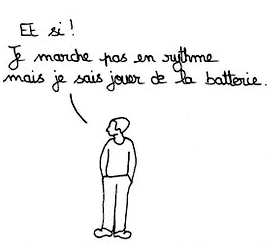 Et si !
Je marche pas en rythme
mais je sais jouer de la batterie.